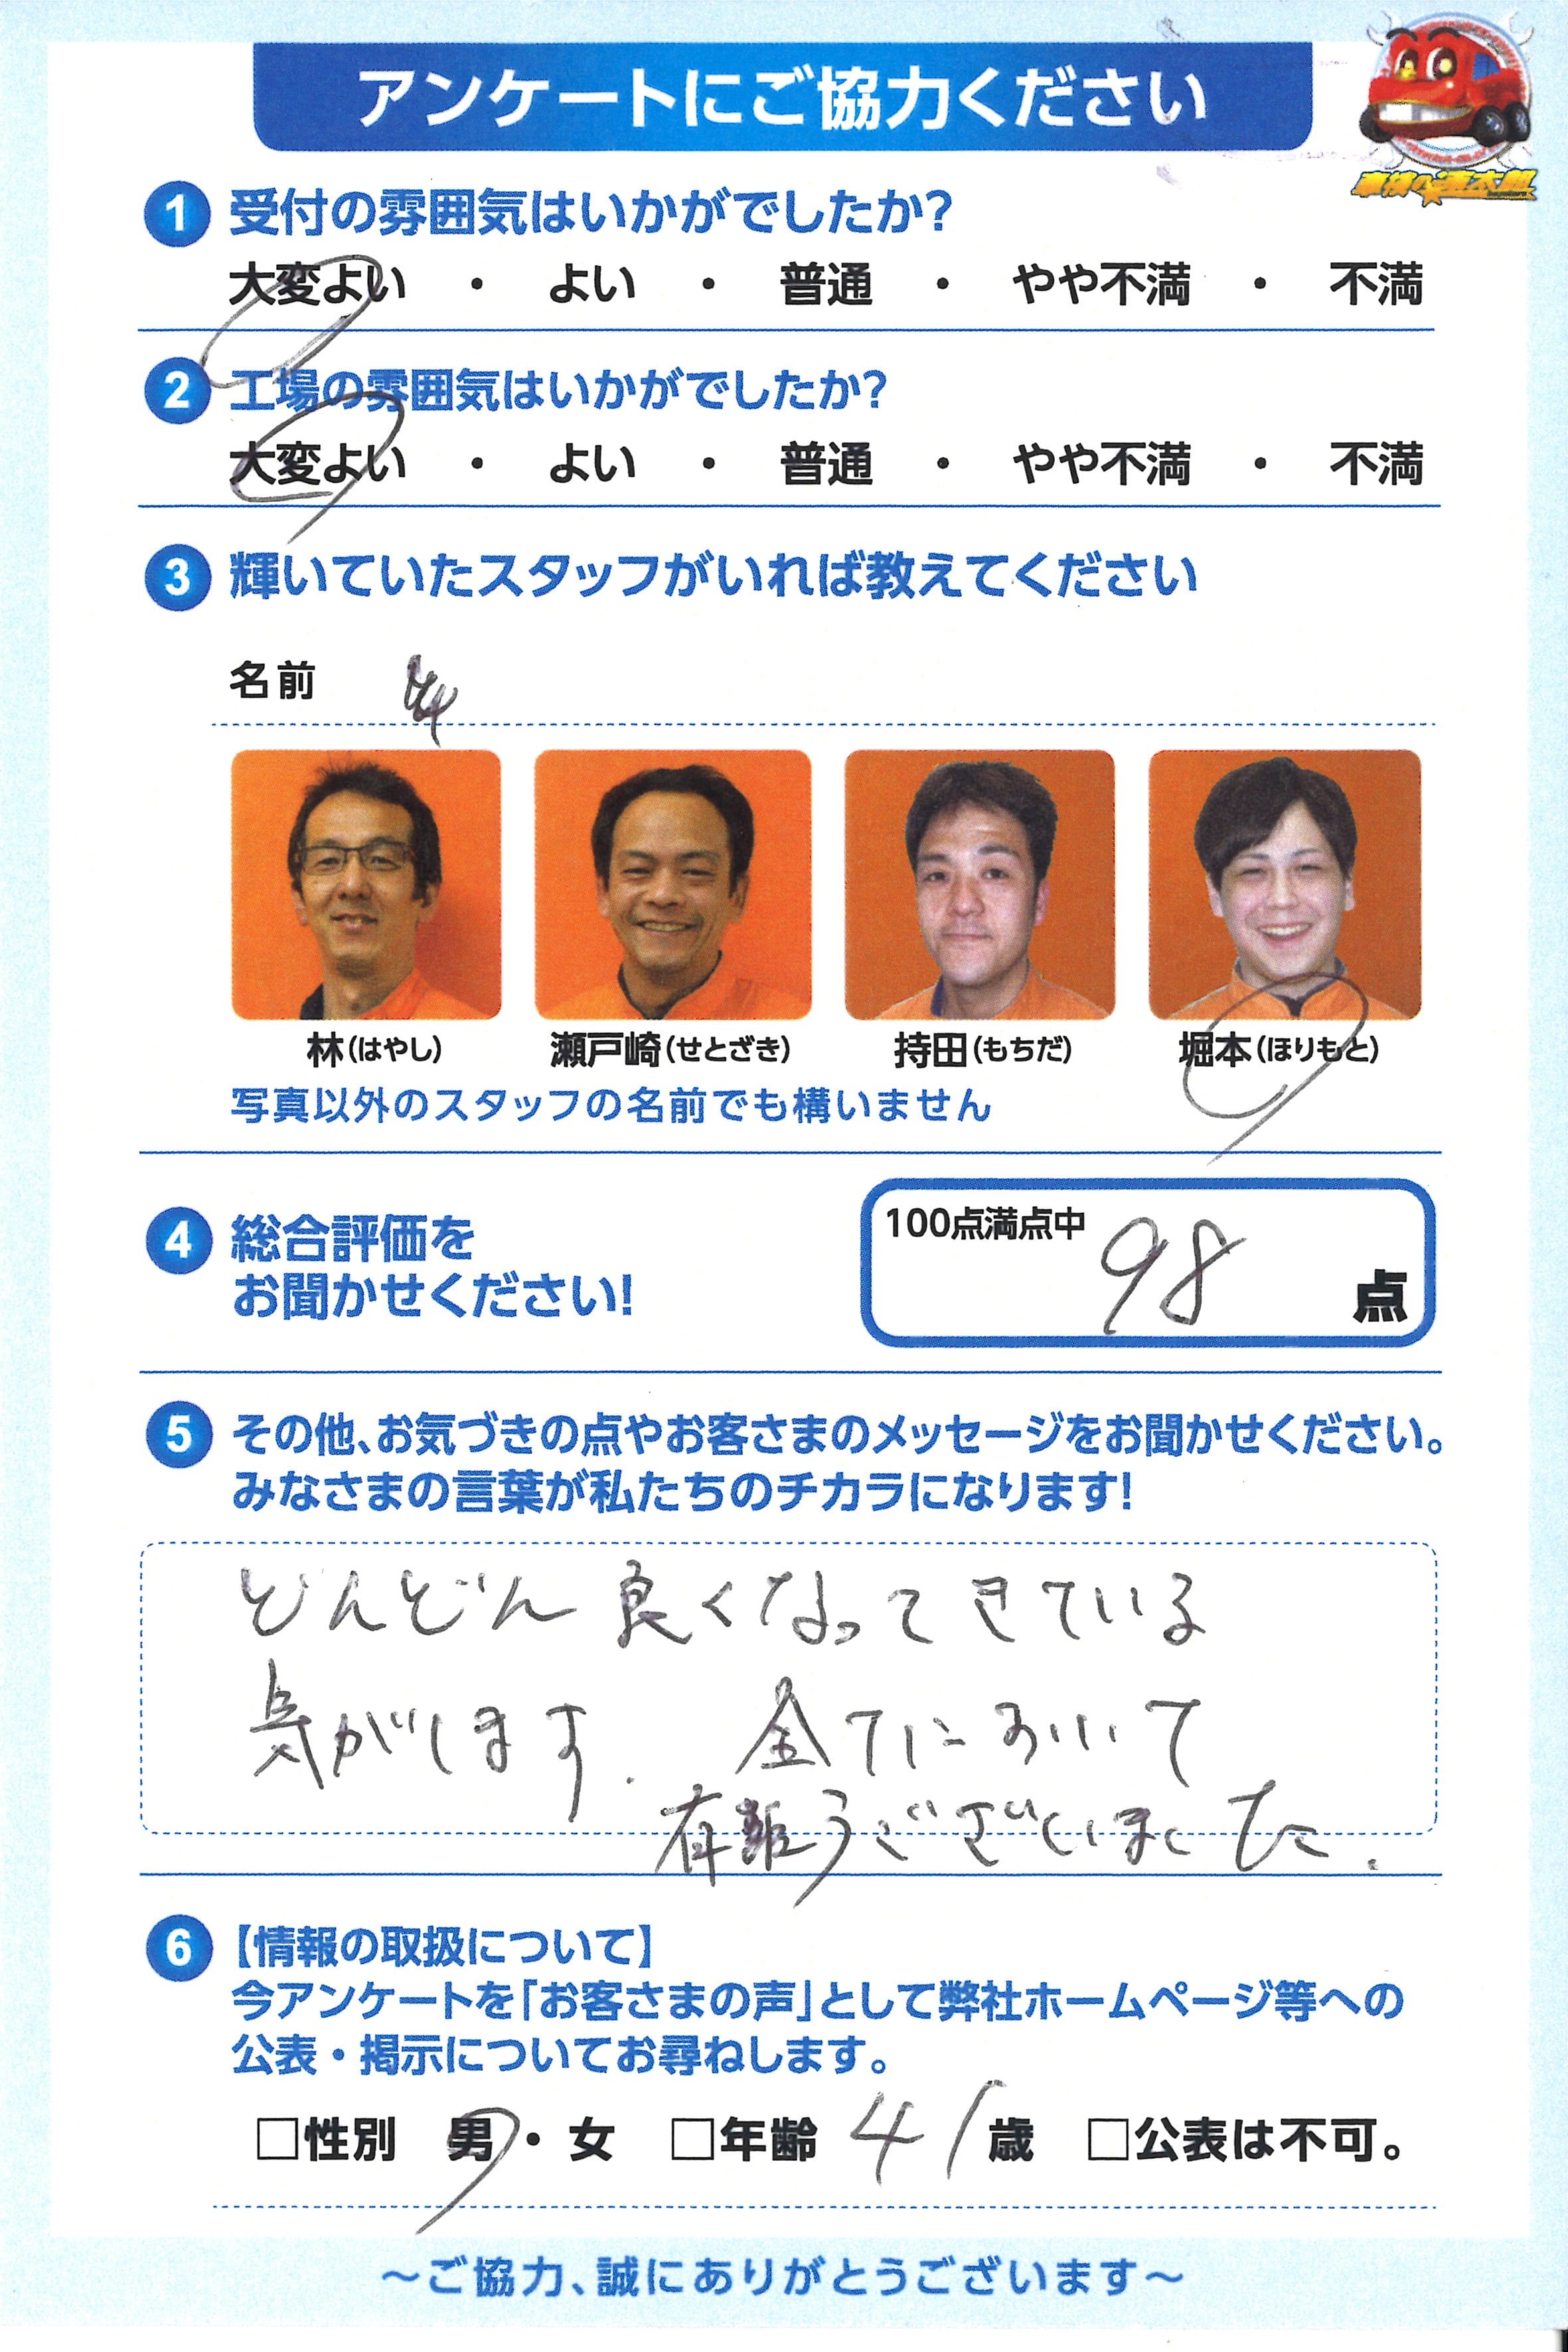 アンケートにご協力ください
車検の速太郎
1 受付の雰囲気はいかがでしたか?
大変よい ・ よい ・ 普通 ・ やや不満 ・ 不満
2 工場の雰囲気はいかがでしたか?
大変よい ・ よい ・ 普通 ・ やや不満 ・ 不満
3 輝いていたスタッフがいれば教えてください
名前
林(はやし) 瀬戸崎(せとざき) 持田(もちだ) 堀本(ほりもと)
写真以外のスタッフの名前でも構いません
4 総合評価を
お聞かせください!
100点満点中 98 点
5 その他、お気づきの点やお客さまのメッセージをお聞かせください。
みなさまの言葉が私たちのチカラになります!
どんどん良くなってきている
気がします. 全てにおいて
有難うございました.
6 【情報の取扱について】
今アンケートを「お客さまの声」として弊社ホームページ等への
公表・掲示についてお尋ねします。
□性別 男・女 □年齢 41歳 □公表は不可。
～ご協力、誠にありがとうございます～